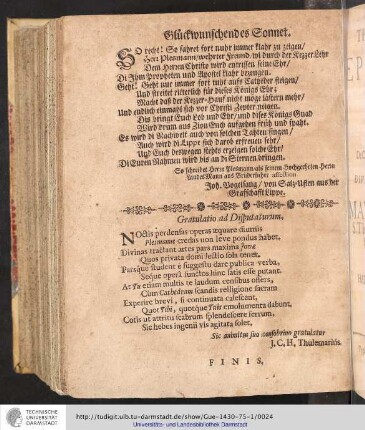 Glückwunschendes Sonnet.
SO recht! So fahret fort nuhr immer klahr zu zeigen/
Herr Plesmann/wehrter Freund, wi durch der Kezzer Lehr
Dem Herren Christo wird entrissen seine Ehr/
Di Ihm Propheten und Apostel klahr bezeugen.
Geht! Geht nuhr immer fort nuhr aufs Catheder steigen/
Und streitet ritterlich für dises Königs Ehr;
Macht daß der Kezzer-Hauf nicht möge lästern mehr/
Und endlich einmahl sich vor Christi Zepter neigen.
Dis bringt Euch Lob und Ehr/ und dises Königs Guad
Wird drum aus Zion Euch aufgehen früh und spaht.
Es wird di Nachwelt auch von solchen Tahten singen/
Auch wird di Lippe sich darob erfreuen sehr/
Und Euch deswegen stehts erzeigen solche Ehr/
Di Euren Nahmen wird bis an di Sternen bringen.
So schreibet Herrn Plesmann als seinem Hochgeehrten Herrn
Landes Mann aus Brüderlicher affection
Joh. Vogelsang/ von Salz-Uflen aus der
Grafschaft Lippe.
Gratulatio ad Disputaturum.
NOctis perdensus operas æquare diurnis
Plesmanne credas non leve pondus habet,
Divinas tractant artes pars maxima sone
Quos privata domi lectio sola tenet.
Parsque student è suggestu dare publica verba,
Seque operâ functos hinc satis esse putant.
At Tu etiam multis te laudum censibus offers,
Cùm Cathedram scandis relligione sacram
Experire brevi, si continuata calescant,
Quot Tibi, quotque Tuis emolumenta dabunt.
Cotis ut attritu scabrum splendescere ferrum,
Sic hebes ingenii vis agitata solet,
Sic animitus suo consobrino gratulatur
J. C, H, Thulemarius.
FINIS.
TECHNISCHE
UNIVERSITÄT
DARMSTADT
http://tudigit.ulb.tu-darmstadt.de/show/Gue-1430-75-1/0024
Universitäts- und Landesbibliothek Darmstadt